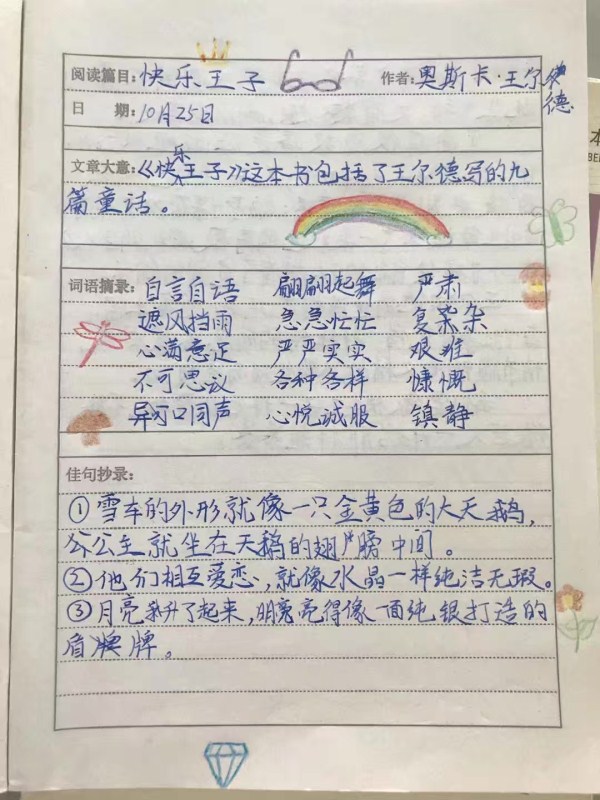 阅读篇目:快乐王子 作者:奥斯卡·王尔德
日 期:10月25日
文章大意:《快乐王子》这本书包括了王尔德写的九
篇童话。
词语摘录: 自言自语 翩翩起舞 严肃
遮风挡雨 急急忙忙 复杂杂
心满意足 严严实实 艰难
不可思议 各种各样 慷慨
异口同声 心悦诚服 镇静
佳句抄录:
①雪车的外形就像一只金黄色的大天鹅,
公主就坐在天鹅的翅膀中间。
②他们相互爱恋,就像水晶一样纯洁无瑕。
③月亮升了起来,明亮得像一面纯银打造的
盾牌。
本